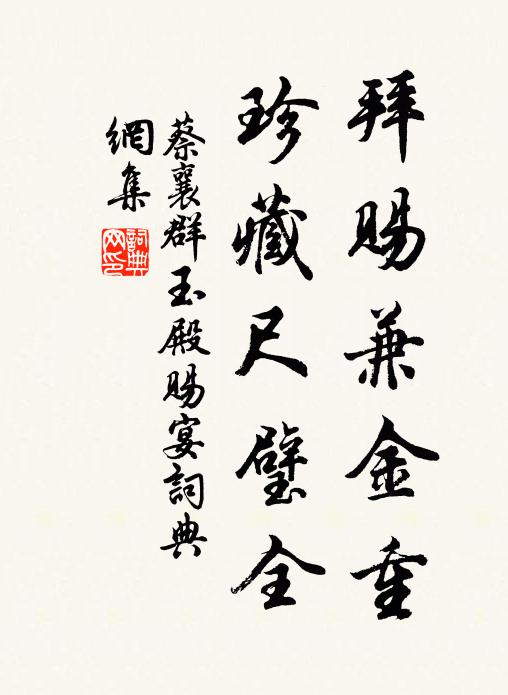 拜賜兼金重
珍藏尺璧全
蔡襄群玉殿賜宴詞典
網集
詞典
网印